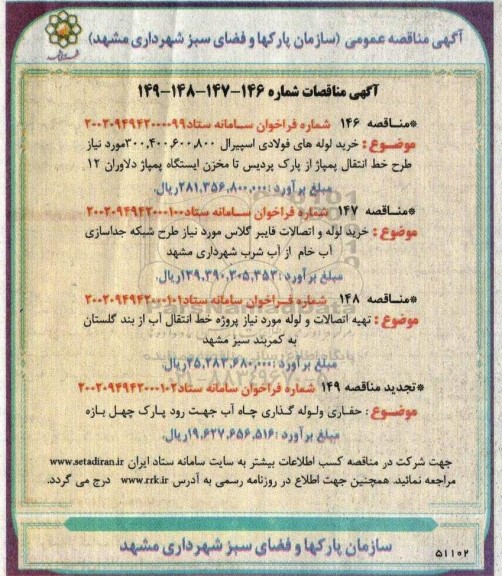 آگهی مناقصه عمومی (سازمان پارکها و فضای سبز شهرداری مشهد)
آگهی مناقصات شماره ۱۴۶-۱۴۷-۱۴۸-۱۴۹
*مناقصه ۱۴۶ شماره فراخوان سامانه ستاد ۲۰۰۲۰۹۴۹۴۲۰۰۰۰۹۹
موضوع : خرید لوله های فولادی اسپیرال ۳۰۰،۴۰۰،۶۰۰،۸۰۰مورد نیاز
طرح خط انتقال پمپاژ از پارک پردیس تا مخزن ایستگاه پمپاژ دلاوران ۱۲
مبلغ برآورد :۲۸۱،۳۵۶،۸۰۰،۰۰۰ریال.
*مناقصه ۱۴۷ شماره فراخوان سامانه ستاد۲۰۰۲۰۹۴۹۴۲۰۰۰۱۰۰
موضوع : خرید لوله و اتصالات فایبر گلاس مورد نیاز طرح شبکه جداسازی
آب خام از آب شرب شهرداری مشهد
مبلغ برآورد :۱۳۹،۳۹۰،۳۰۵،۳۵۳ریال.
*مناقصه ۱۴۸ شماره فراخوان سامانه ستاد۲۰۰۲۰۹۴۹۴۲۰۰۰۱۰۱
موضوع : تهیه اتصالات و لوله مورد نیاز پروژه خط انتقال آب از بند گلستان
به کمربند سبز مشهد
مبلغ برآورد :۲۵،۲۸۳،۶۸۰،۰۰۰ریال.
*تجدید مناقصه ۱۴۹ شماره فراخوان سامانه ستاد۲۰۰۲۰۹۴۹۴۲۰۰۰۱۰۲
موضوع : حفاری ولوله گذاری چاه آب جهت رود پارک چهل بازه
مبلغ برآورد :۱۹،۶۲۷،۶۵۶،۵۱۶ریال.
جهت شرکت در مناقصه کسب اطلاعات بیشتر به سایت سامانه ستاد ایران www.setadiran.ir
مراجعه نمائید. همچنین جهت اطلاع در روزنامه رسمی به آدرس www.rrk.ir درج می گردد.
سازمان پارکها و فضای سبز شهرداری مشهد
۵۱۱۰۲